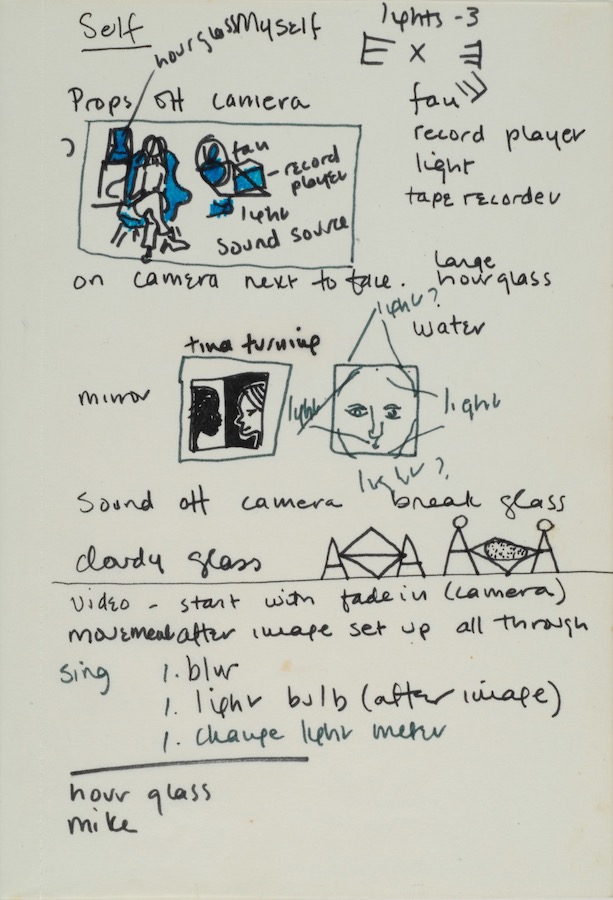 Self
hourglass Myself
lights - 3
x
Props off camera
fan
record player
light
tape recorder
fan
record
player
light
sound source
on camera next to face.
large
hourglass
water
light?
tina turning
mirror
light
light
light?
Sound off camera break glass
cloudy glass
video - start with fade in (camera)
movement after image set up all through
sing
1. blur
1. light bulb (after image)
1. change light meter
hour glass
mike